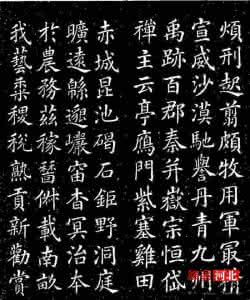 煩刑起翦頗牧用軍最
宣威沙漠馳譽丹青九州
禹跡百郡秦并嶽宗恒岱
禪主云亭鴈門紫塞雞田
赤城昆池碣石鉅野洞庭
曠遠緜邈巖岫杳冥治本
於農務茲稼穡俶載南畝
我藝黍稷稅熟貢新勸賞
河北